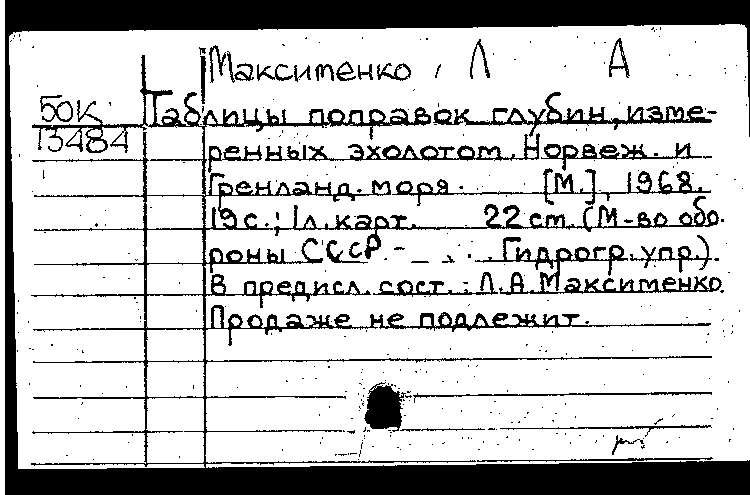 Максименко, Л А
БОК
13484
Таблицы поправок глубин, изме-
ренных эхолотом. Норвеж. и
Гренланд. моря. [М.], 1968.
19 с.; 1 л. карт. 22 cm. (М-во обо-
роны СССР - . . Гидрогр. упр.).
В предисл. сост.: Л. А. Максименко
Продаже не подлежит.